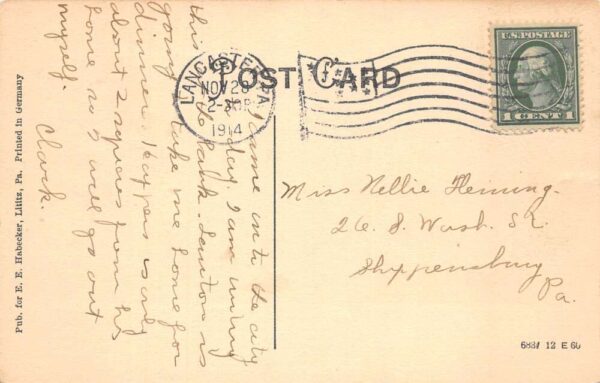 POST CARD
LANCASTER, PA.
NOV 28
2-30P
1914
U.S. POSTAGE
1 CENT 1
I came into the city
today. I am writing
this the bank. is
going to take me home for
dinner. is only
about 2 squares from his
home so I will go out
myself.
Clark.
Miss Nellie Fleming.
26. S. Wash. St.
Shippensburg
Pa.
Pub. for E. E. Habecker, Lititz, Pa. Printed in Germany
12 E 60